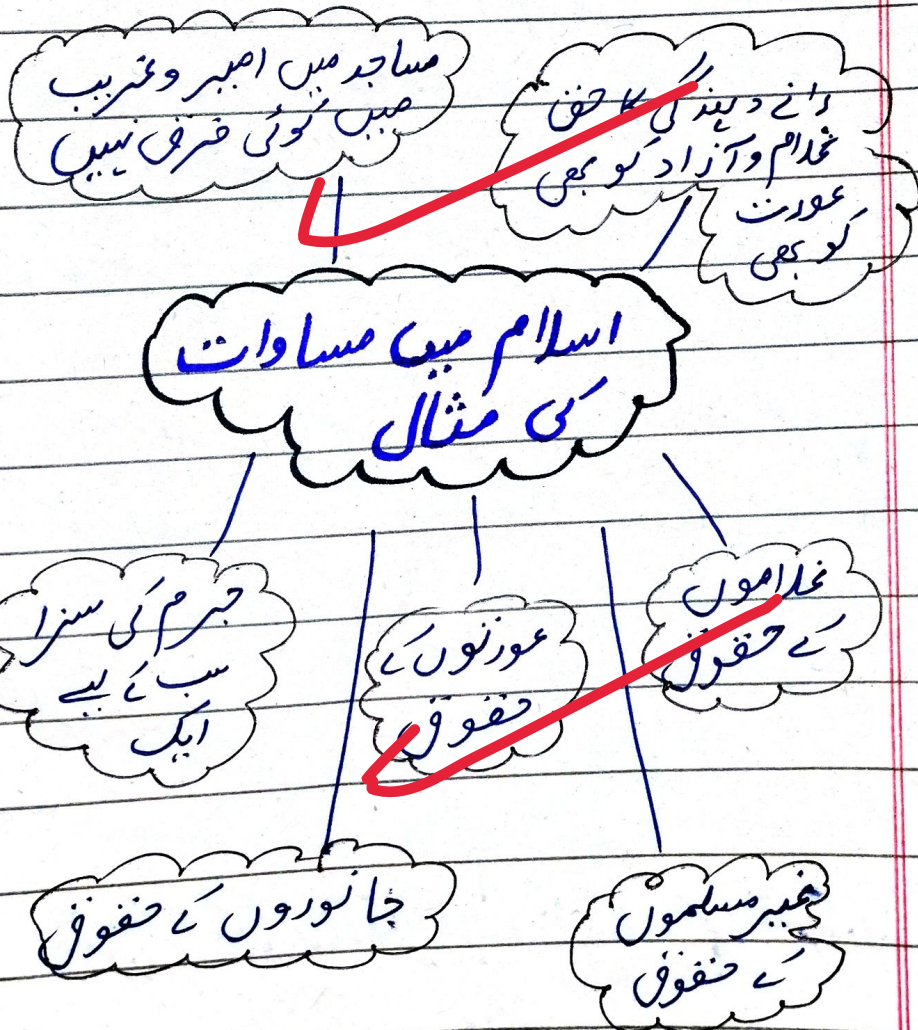 مساجد میں امیر و غریب
میں کوئی فرق نہیں
رائے دہندگی کا حق
غلام و آزاد کو بھی
عورت
کو بھی
اسلام میں مساوات
کی مثال
جرم کی سزا
سب کے لیے
ایک
عورتوں کے
حقوق
غلاموں
کے حقوق
جانوروں کے حقوق
غیر مسلموں
کے حقوق